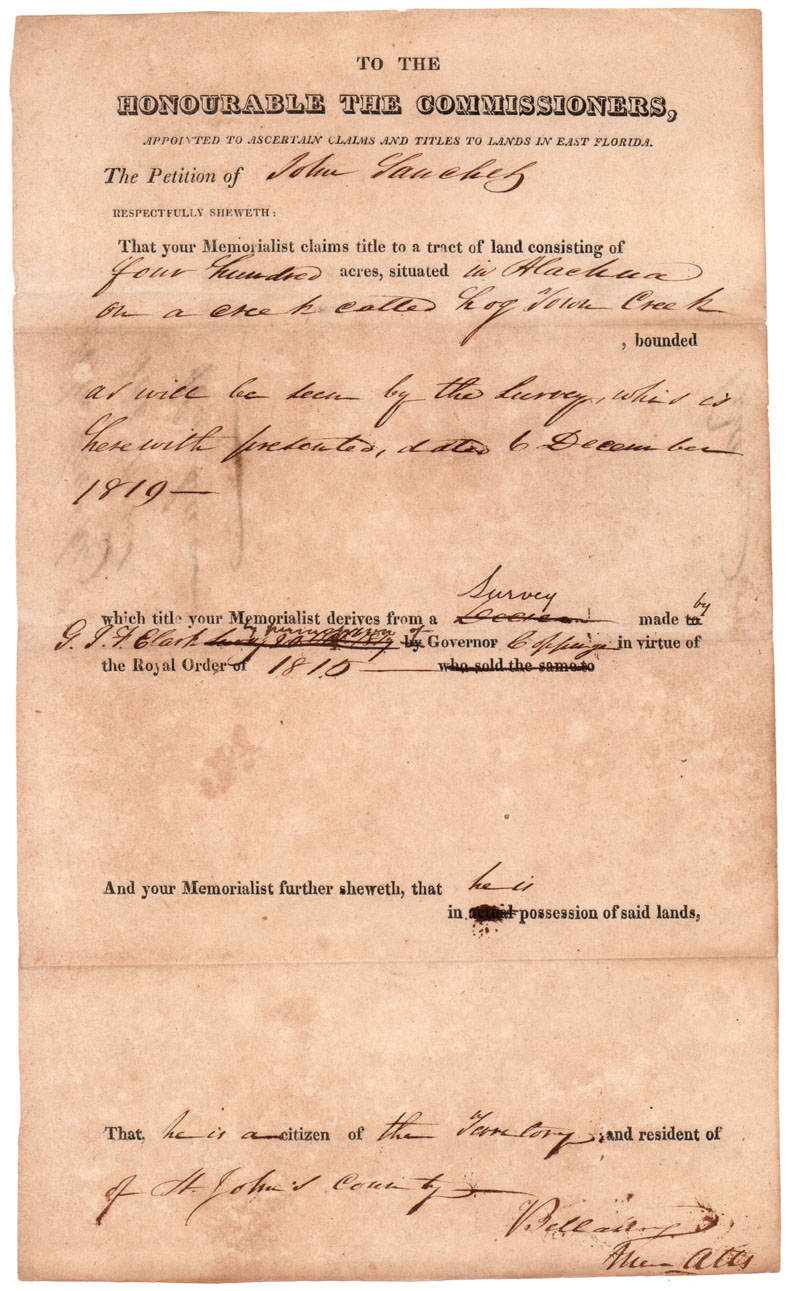 TO THE
HONOURABLE THE COMMISSIONERS,
APPOINTED TO ASCERTAIN CLAIMS AND TITLES TO LANDS IN EAST FLORIDA.
The Petition of John Sanchez
RESPECTFULLY SHEWETH:
That your Memorialist claims title to a tract of land consisting of
four hundred acres, situated in Alachua
on a creek called Hog Town Creek
, bounded
as will be seen by the Survey, whis is
herewith presented, dated 6 December
1819—
Survey
which title your Memorialist derives from a made to by
G. J. F. Clark by permission of by Governor Coppinger in virtue of
the Royal Order of 1815 — who sold the same to
And your Memorialist further sheweth, that he is
in actual possession of said lands,
That, he is a citizen of the Territory, and resident of
of St. John's County
Bellamy
Atts